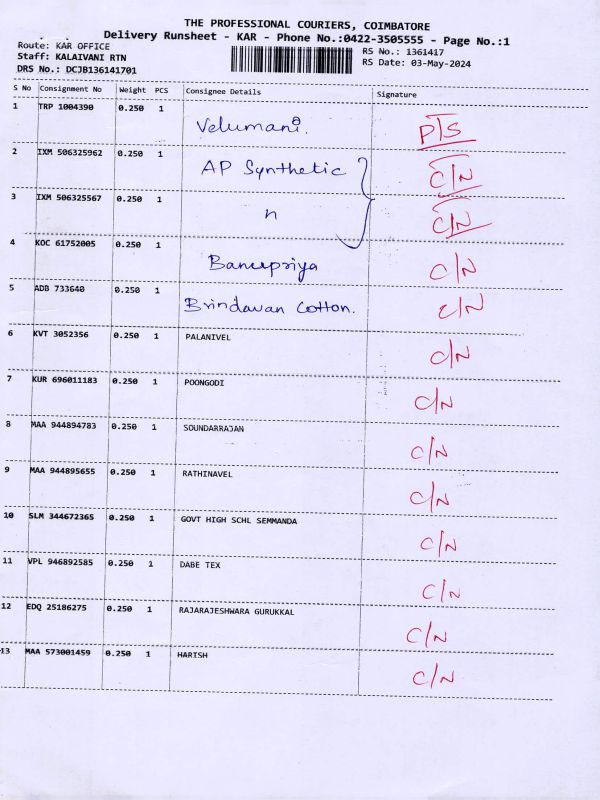 THE PROFESSIONAL COURIERS, COIMBATORE
Delivery Runsheet - KAR - Phone No.:0422-3505555 - Page No.:1
Route: KAR OFFICE RS No.: 1361417
Staff: KALAIVANI RTN RS Date: 03-May-2024
DRS No.: DCJB136141701
S No Consignment No Weight PCS Consignee Details Signature
1 TRP 1004390 0.250 1 Velumani. P/S
2 IXM 506325962 0.250 1 AP Synthetic C/N
3 IXM 506325567 0.250 1 n C/N
4 KOC 61752005 0.250 1 Banupriya C/N
5 ADB 733640 0.250 1 Brindavan Cotton. C/N
6 KVT 3052356 0.250 1 PALANIVEL C/N
7 KUR 696011183 0.250 1 POONGODI C/N
8 MAA 944894783 0.250 1 SOUNDARRAJAN C/N
9 MAA 944895655 0.250 1 RATHINAVEL C/N
10 SLM 344672365 0.250 1 GOVT HIGH SCHL SEMMANDA C/N
11 VPL 946892585 0.250 1 DABE TEX C/N
12 EDQ 25186275 0.250 1 RAJARAJESHWARA GURUKKAL C/N
13 MAA 573001459 0.250 1 HARISH C/N